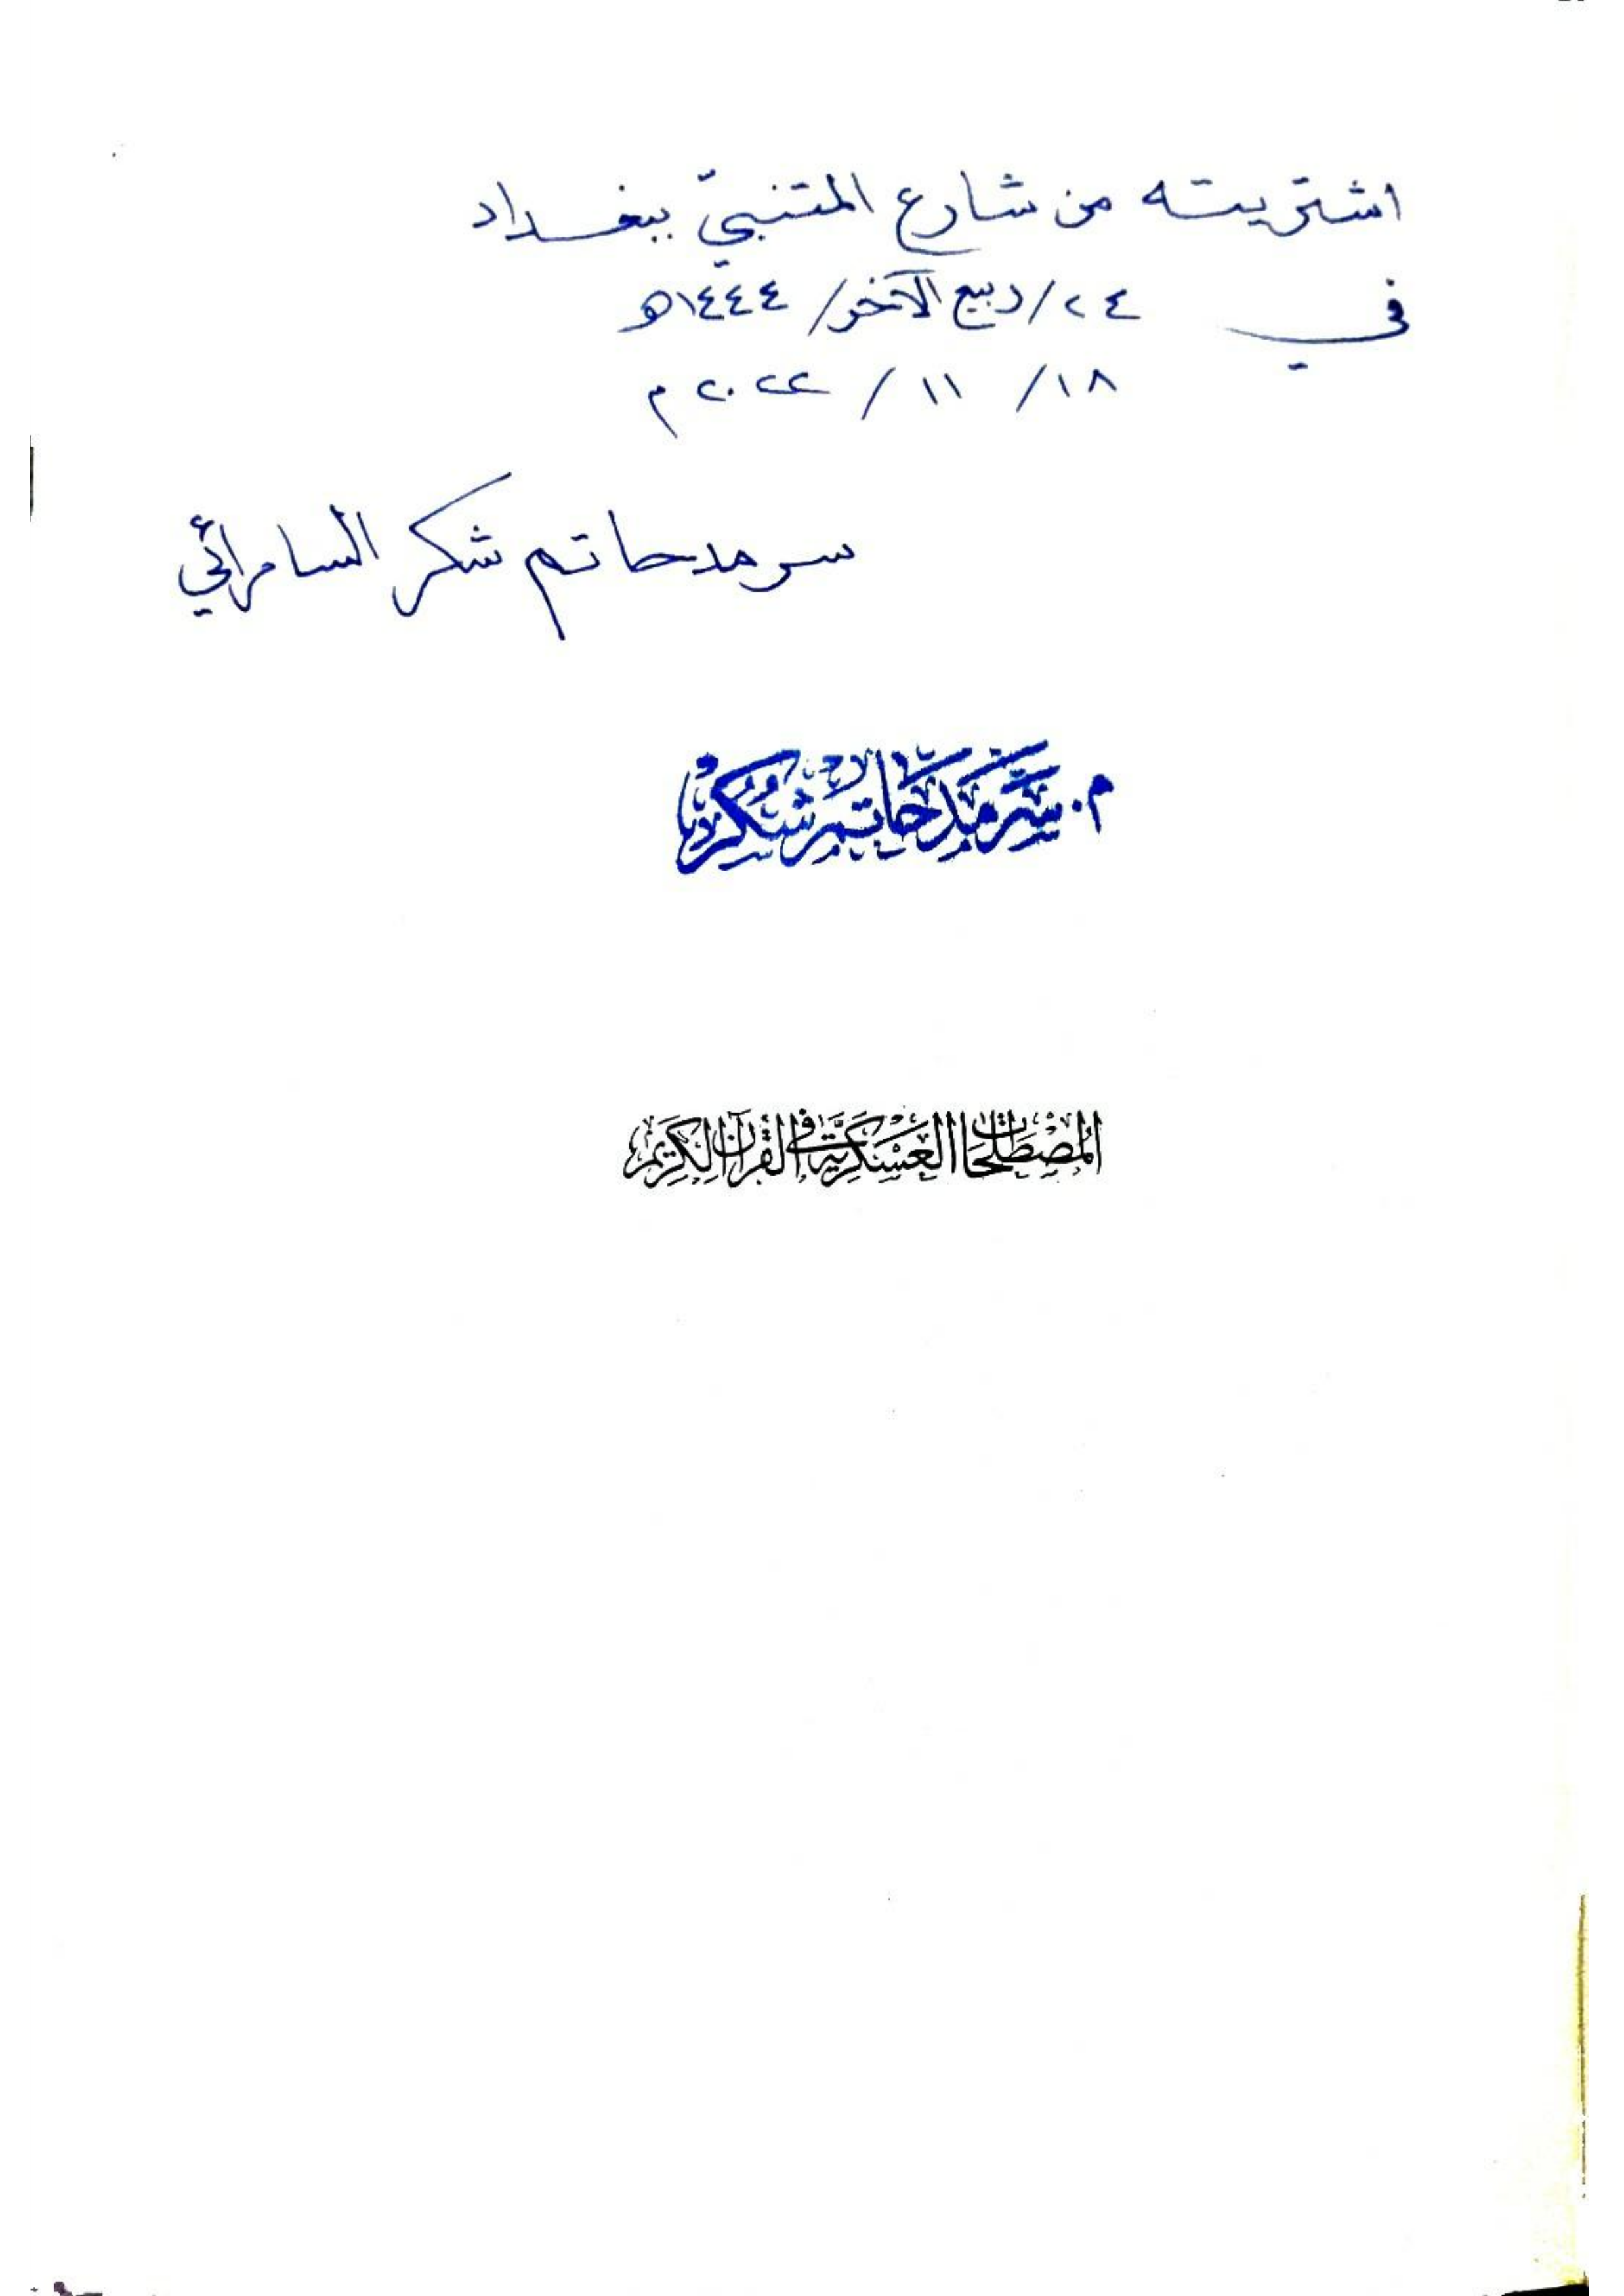 اشتريته من شارع المتنبيّ ببغداد
في ٢٤/ربيع الآخر/١٤٤٤ه
١٨/ ١١ / ٢٠٢٢م
سرمد حاتم شكر السامرائي
م. سَرْمَد حَاتِم شُكْر
المُصْطَلَحَات العَسْكَرِيَّة في القُرْآن الكَرِيم